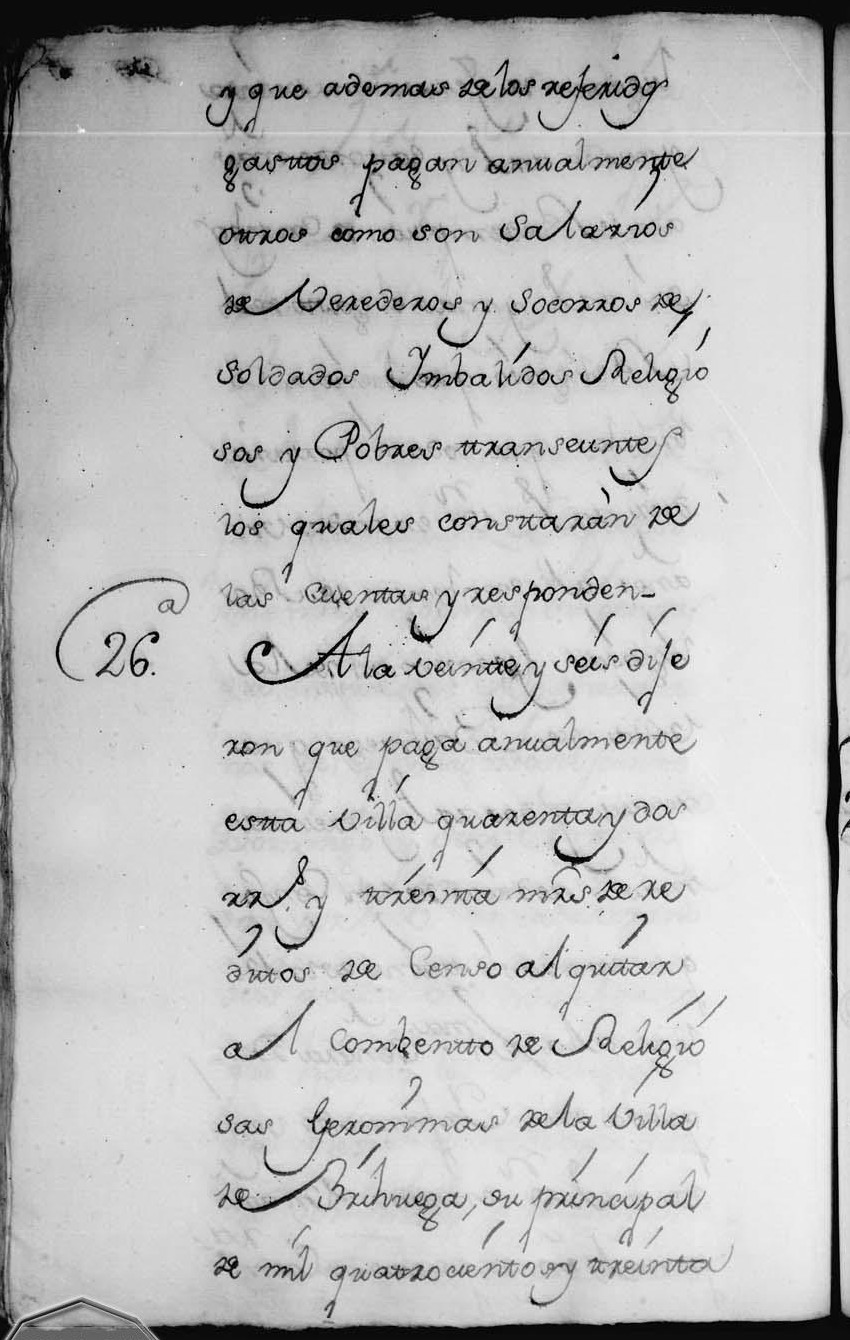 y que ademas de los referidos
gasttos pagan anualmente
ottros como son Salarios
de Verederos y Socorros de
Soldados Ymbalidos Religio
sos y Pobres ttranseuntes
los quales consttaràn de
las Cuentas y responden_
26.a A la veintte y seis dije
ron que paga anualmente
estta Villa quarenta y dos
rr.s y ttreintta mrs. de re
ditos de Censo al quitar
al Combentto de Religio
sas Geronimas de la Villa
de Brihuega, su principal
de mil quatrocientos y ttreinta